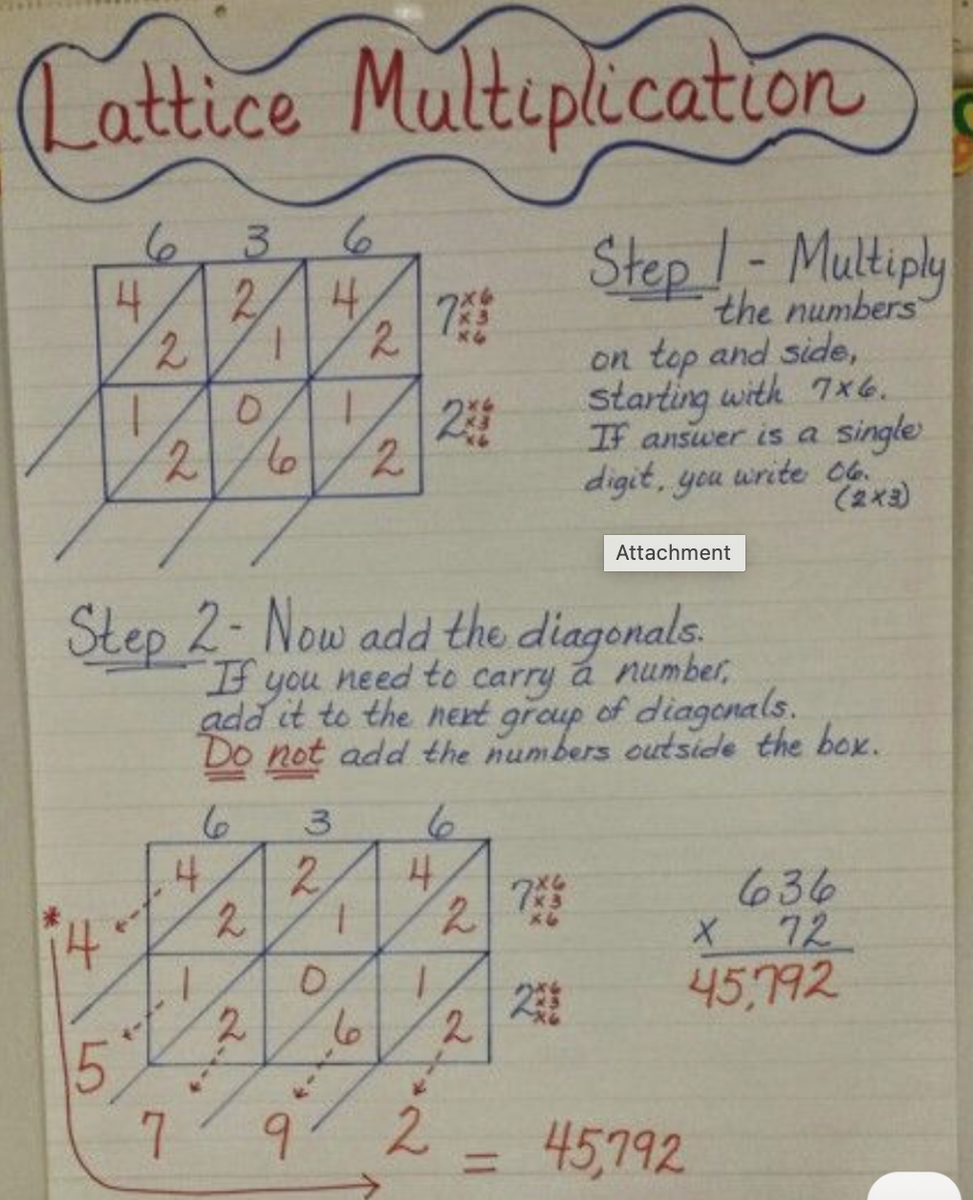 Lattice Multiplication
6 3 6
4 2 4
2 1 2
7 x6
x3
x6
1 0 1
2 6 2
2 x6
x3
x6
Step 1 - Multiply
the numbers
on top and side,
starting with 7x6.
If answer is a single
digit, you write 06.
(2x3)
Attachment
Step 2 - Now add the diagonals.
If you need to carry a number,
add it to the next group of diagonals.
Do not add the numbers outside the box.
6 3 6
4 2 4
2 1 2
7 x6
x3
x6
* 4
1 0 1
2 6 2
2 x6
x3
x6
5
7 9 2 = 45,792
636
x 72
45,792